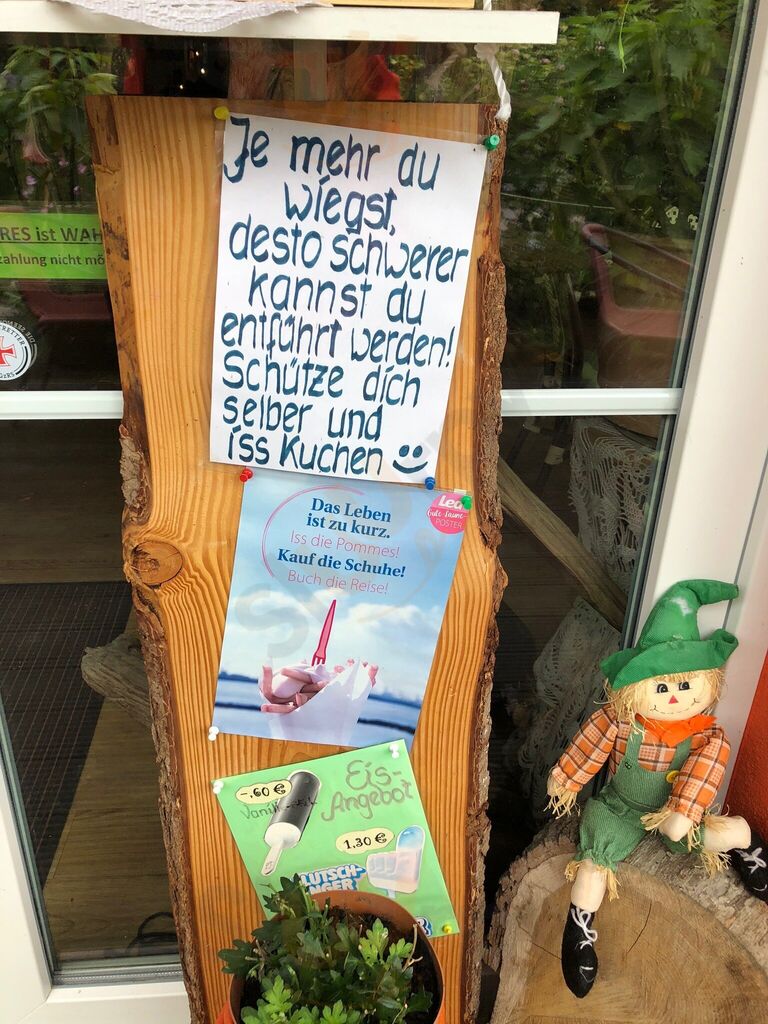 Je mehr du
wiegst,
desto schwerer
kannst du
entführt werden!
Schütze dich
selber und
iss Kuchen
RES ist WAH
zahlung nicht mö
Das Leben
ist zu kurz.
Iss die Pommes!
Kauf die Schuhe!
Buch die Reise!
Lea
Gute-Laune-
POSTER
Eis-
Angebot
-,60 €
1,30 €
LUTSCH-
INGER